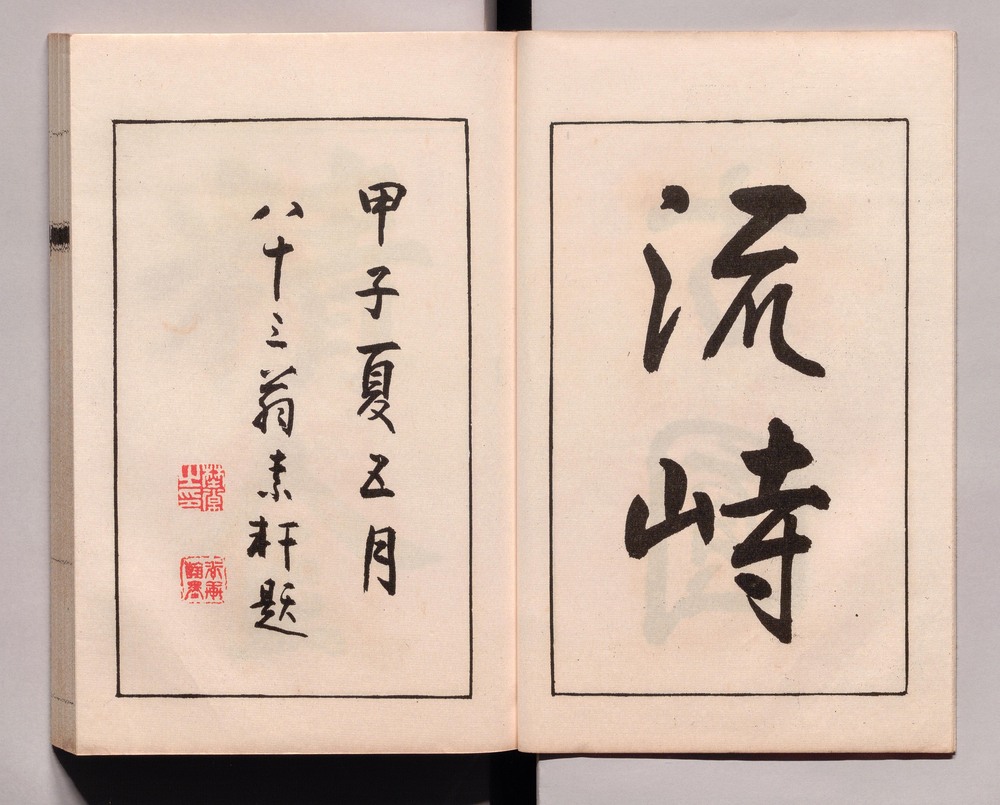 流峙
甲子夏五月
八十三翁素軒題